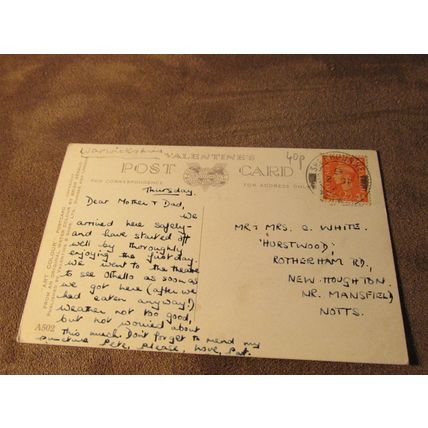 Warwickshire
VALENTINE'S
40p
POST CARD
FOR CORRESPONDENCE
FOR ADDRESS ONLY
Thursday.
Dear Mother & Dad,
We
arrived here safely -
and have started off
well by thoroughly
enjoying the first day.
We went to the theatre
to see Othello as soon as
we got here (after we
had eaten anyway!)
Weather not too good,
but not worried about
this much. Don't forget to mend my
puncture Pete, please, Love, Pat.
MR & MRS. C. WHITE.
'HURSTWOOD',
ROTHERHAM RD.,
NEW HOUGHTON
NR. MANSFIELD,
NOTTS.
A502